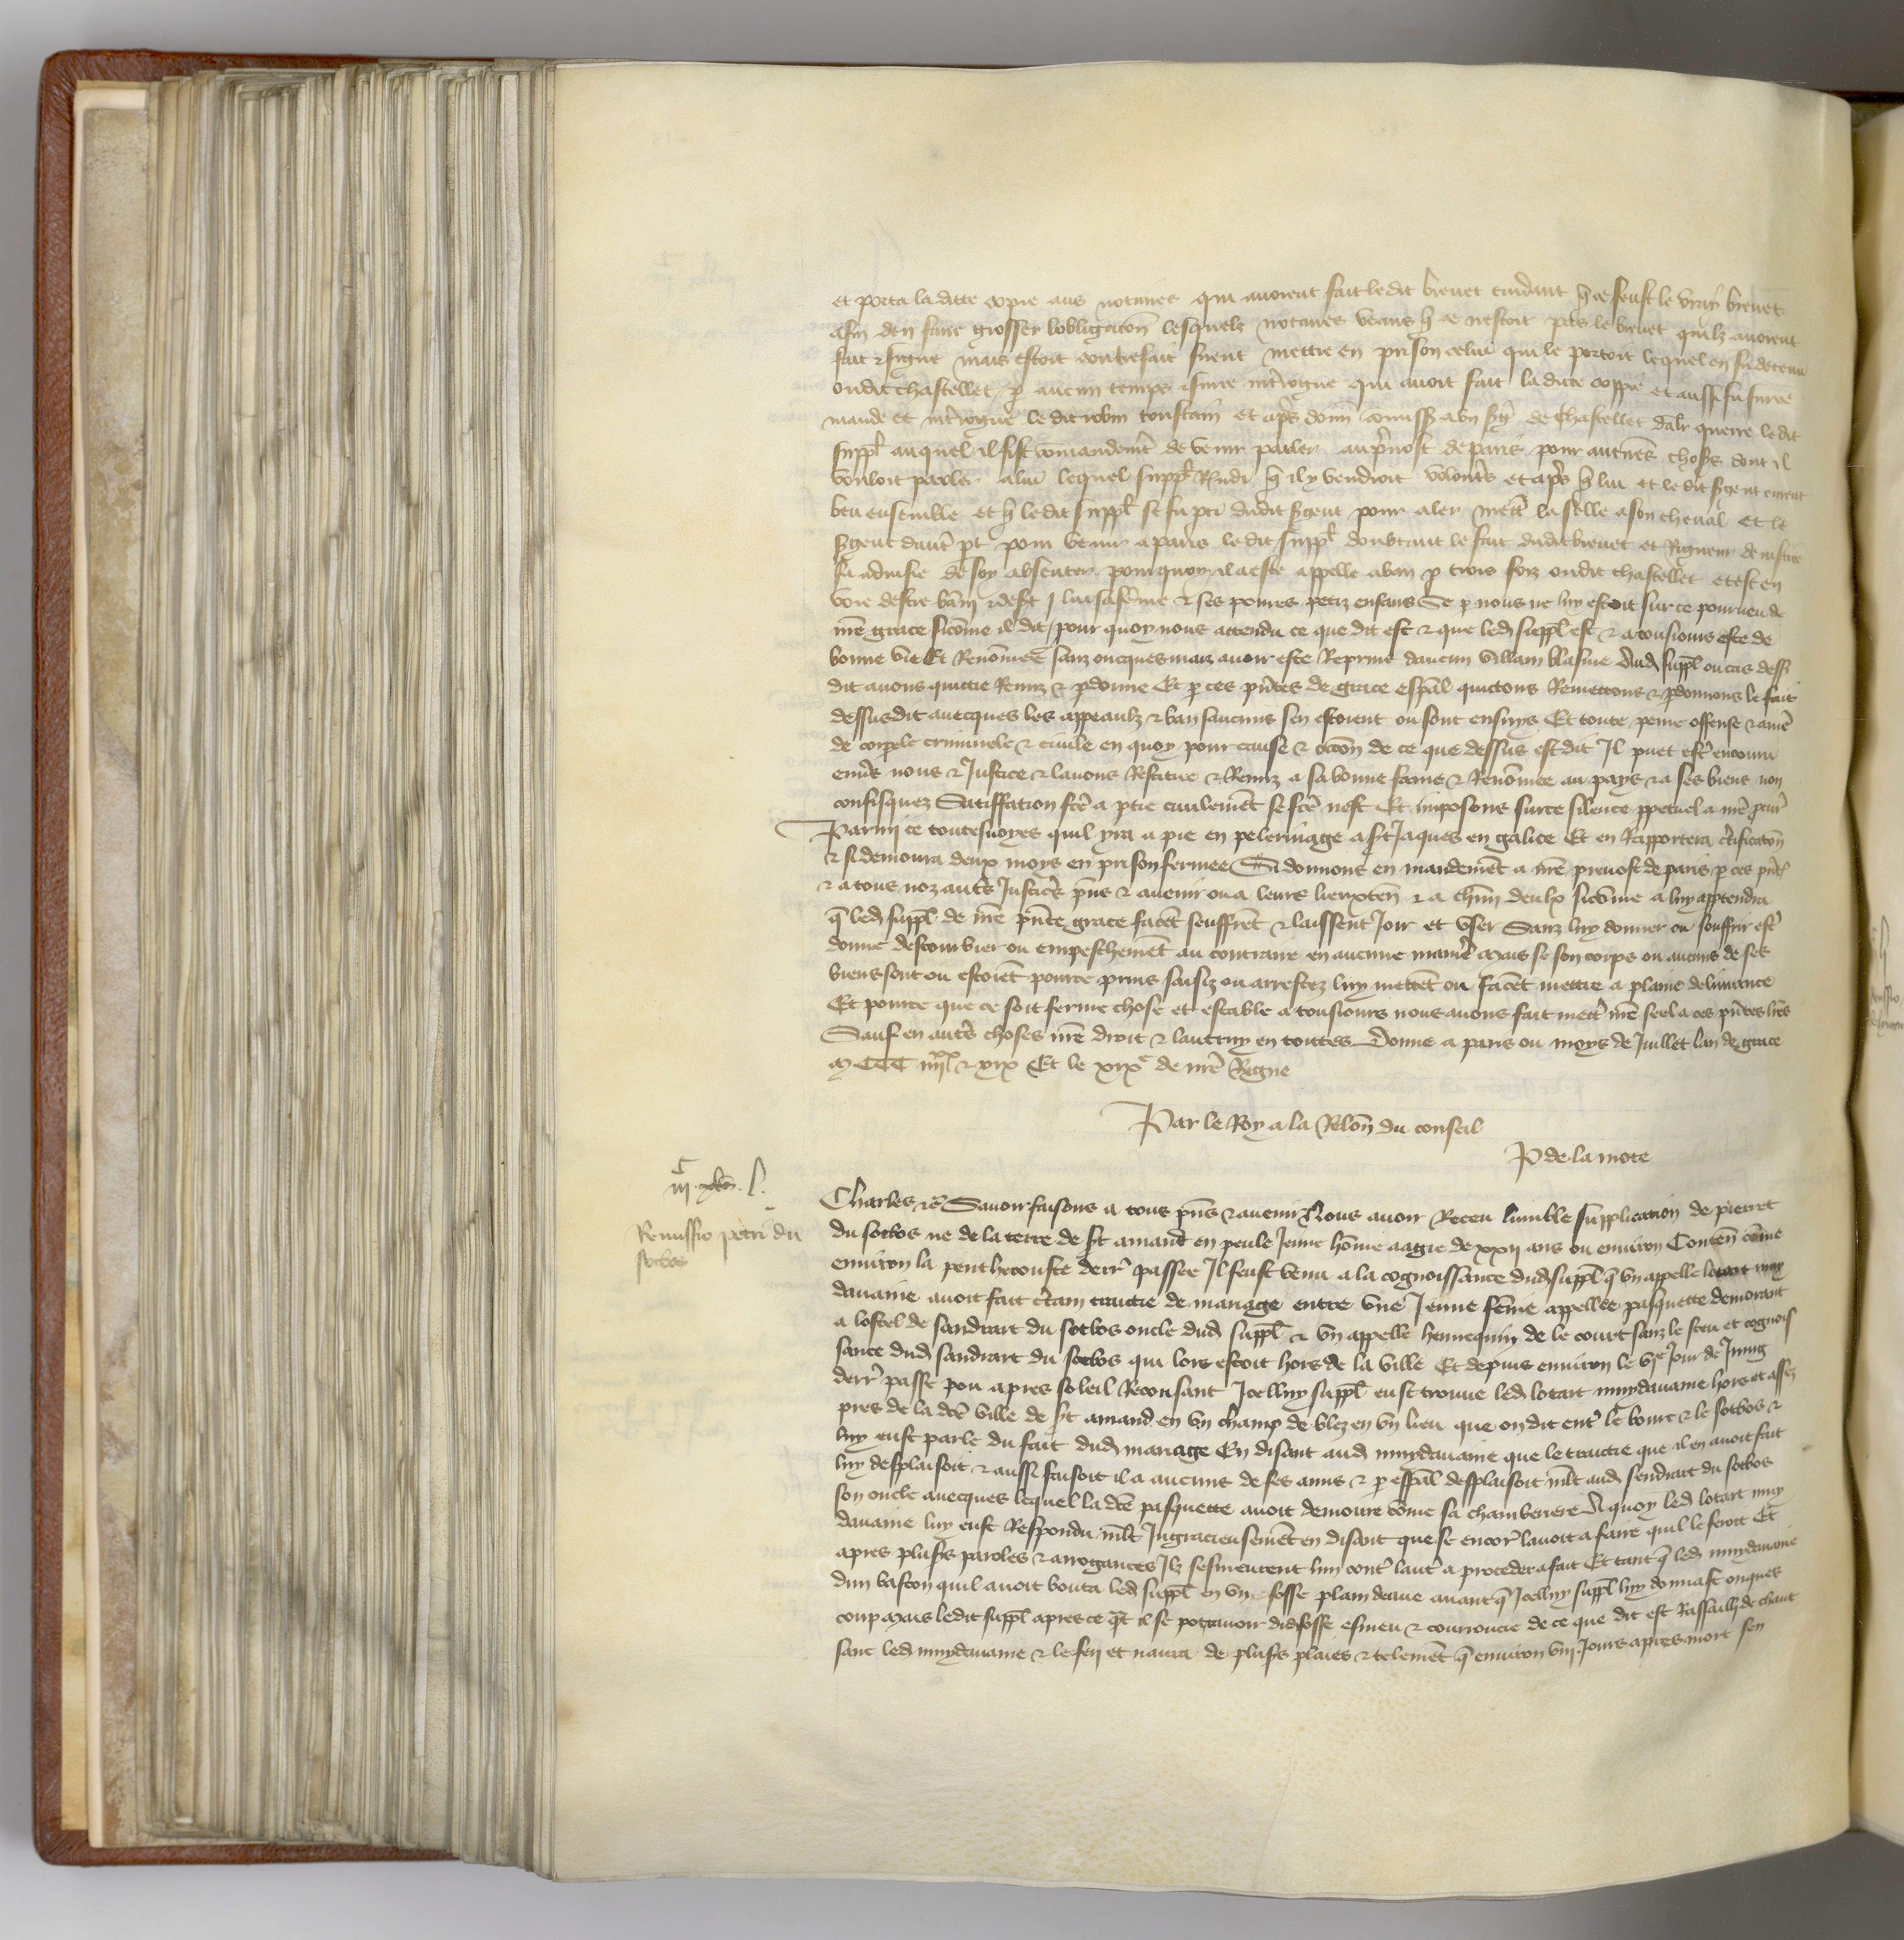 et porta la ditte copie aus notaires qui avoient fait ledit brevet cuidant q̃ ce feust le vray brevet
afin den faire grosser lobligacõn lesquelz notaires veans q̃ ce nestoit pas le brevet quilz avoient
fait & signe mais estoit contrefait firent mettre en prison celui qui le portoit lequel en fu detenu
oudit chastellet p aucun temps & sur ce int̃rogue qui avoit fait la ditte coppie et aussi fu sur ce
mande et int̃rogue le dit robin toustain et ap̃s donñ cõmissõ a un sg̃t de chastellet daler querre le dit
suppl̃ auquel il fist cõmandem̃t de venir parler au p̃vost de paris pour aucunes choses dont il
vouloit parler a lui lequel suppl̃ Rñdi q̃ il y vendroit volont̃s et ap̃s q̃ lui et le dit sgent eurent
beu ensemble et q̃ le dit suppl̃ se fu pti dudit sgent pour aler mett̃ la selle a son cheval et le
sgent davt̃ pt pour venir a paris le dit suppl̃ doubtant le fait dudit brevet et Rigueur de justice
fu advise de soy absenter pour quoy il a este appelle a ban p trois foiz oudit chastellet et est en
voie destre bañi & desert / lui sa fẽme & ses povres petiz enfans Se p nous ne luy estoit sur ce pourveu de
nr̃e grace sicõme il dit / pour quoy nous attendu ce que dit est & que led suppl̃ est & a tousiours este de
bonne vie et Renõmee sanz oncques maiz avoir este Reprins daucun villain blasme Aud suppl̃ ou cas dess̃
dit avons quictie Remiz & pdonne Et p ces pñtes de grace esp̃al quictons Remettons & pdonnons le fait
dessusdit avecques les appeaulz & ban saucuns sen estoient ou sont ensuys Et toute peine offense & amẽ
de corpele criminele & civile en quoy pour cause & occõn de ce que dessus est dit Il puet est̃ encouru
env̂s nous & Justice & lavons Restitue & Remiz a sa bonne fame & Renõmee au pays & a ses biens non
confisquez Satisffation fc̃e a ptie civilem̃t se fc̃e nest Et imposons sur ce silence ppetuel a nr̃e pcur̃
Parmi ce toutesvoyes quil yra a pie en pelerinage a st Jaques en galice Et en Rapportera c̃tificatõn
& si demoura deux moys en prison fermee Si donnons en mandem̃t a nr̃e prevost de paris p ces pñt̃
& a tous noz aut̃s Justic̃s p̃ns & avenir ou a leurs lieuxteñ & a chũn deulx sicõme a luy apptendra
q̃ led suppl̃ de nr̃e pñte grace facẽt seuffrẽt & laissent Joir et user Sanz luy donner ou souffrir est̃
donne destourbier ou empeschem̃t au contraire en aucune manie᷑ Mais se son corps ou aucuns de ses
biens sont ou estoiẽt pource prins saisiz ou arrestez luy mettẽt ou facẽt mettre a plaine delivrance
Et pource que ce soit ferme chose et estable a tousiours nous avons fait mett̃ nr̃e seel a ces pñtes lr̃es
Sauf en aut̃s choses nr̃e droit & lautruy en toutes Donne a paris ou moys de Juillet lan de grace
M CCC IIIIxx & XIX Et le XIXe de nr̃e Regne
Par le Roy a la Relõn du conseil
P de la mote
Remissio petri du
sotbos
Charles &c̃ Savoir faisons a tous p̃ns & avenir Nous avoir Receu lumble supplication de pierret
du sotbos ne de la terre de st amant en peule Jeune hõme aagie de XXII ans ou environ Conteñ cõme
environ la penthecouste derr̃ passee Il feust venu a la cognoissance dud suppl̃ q̃ un appelle lotart muy
davaine avoit fait c̃tain traictie de mariage entre une Jeune fẽme appellee pasquette demorant
a lostel de sandrart du sotbos oncle dud suppl̃ & un appelle hennequin de le court sanz le sceu et cognois
sance dud sandrart du sotbos qui lors estoit hors de la ville Et depuis environ le VIe Jour de Juing
derr̃ passe pou apres soleil Reconsant Icelluy suppl̃ eust trouve led lotart muydavaine hors et assez
pres de la dc̃e ville de st amand en un champ de blez en un lieu que on dit ent̃ le bourc & le sotbos &
luy eust parle du fait dud mariage En disant aud muydavaine que le traictie que il en avoit fait
luy desplaisoit & aussi faisoit il a aucuns de ses amis & p esp̃al desplaisoit ml̃t aud sendrart du sotbos
son oncle avecques lequel la dc̃e pasquette avoit demoure cõme sa chamberiere A quoy led lotart muy
davaine luy eust Respondu ml̃t Ingracieusem̃t en disant que se encor̃ lavoit a faire quil le feroit Et
apres plus̃s paroles & arrogances Ilz sesmeurent lun cont̃ laut̃ a proceder a fait Et tant q̃ led muydavaine
dun baston quil avoit bouta led suppl̃ en un fosse plain deaue avant q̃ Icelluy suppl̃ luy donnast onques
coup Mais ledit suppl̃ apres ce q̃t il se pot ravoir dud fosse esmeu & courroucie de ce que dit est Rassailly de chaut
sanc led muydavaine & le feri et navra de plus̃s plaies & telem̃t q̃ environ VIII Jours apres mort sen